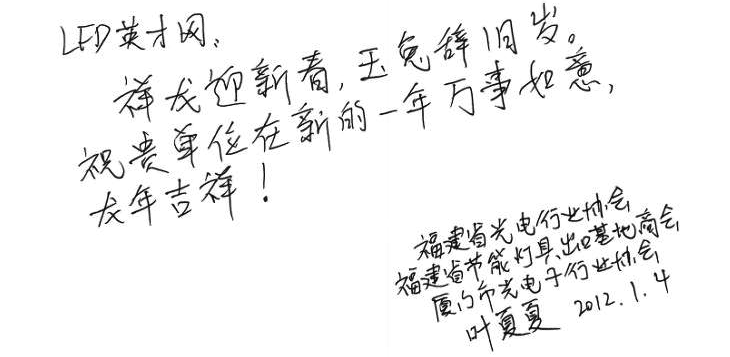 LED英才网：
祥龙迎新春，玉兔辞旧岁。
祝贵单位在新的一年万事如意，
龙年吉祥！
福建省光电行业协会
福建省节能灯具出口基地商会
厦门市光电子行业协会
叶夏夏 2012.1.4